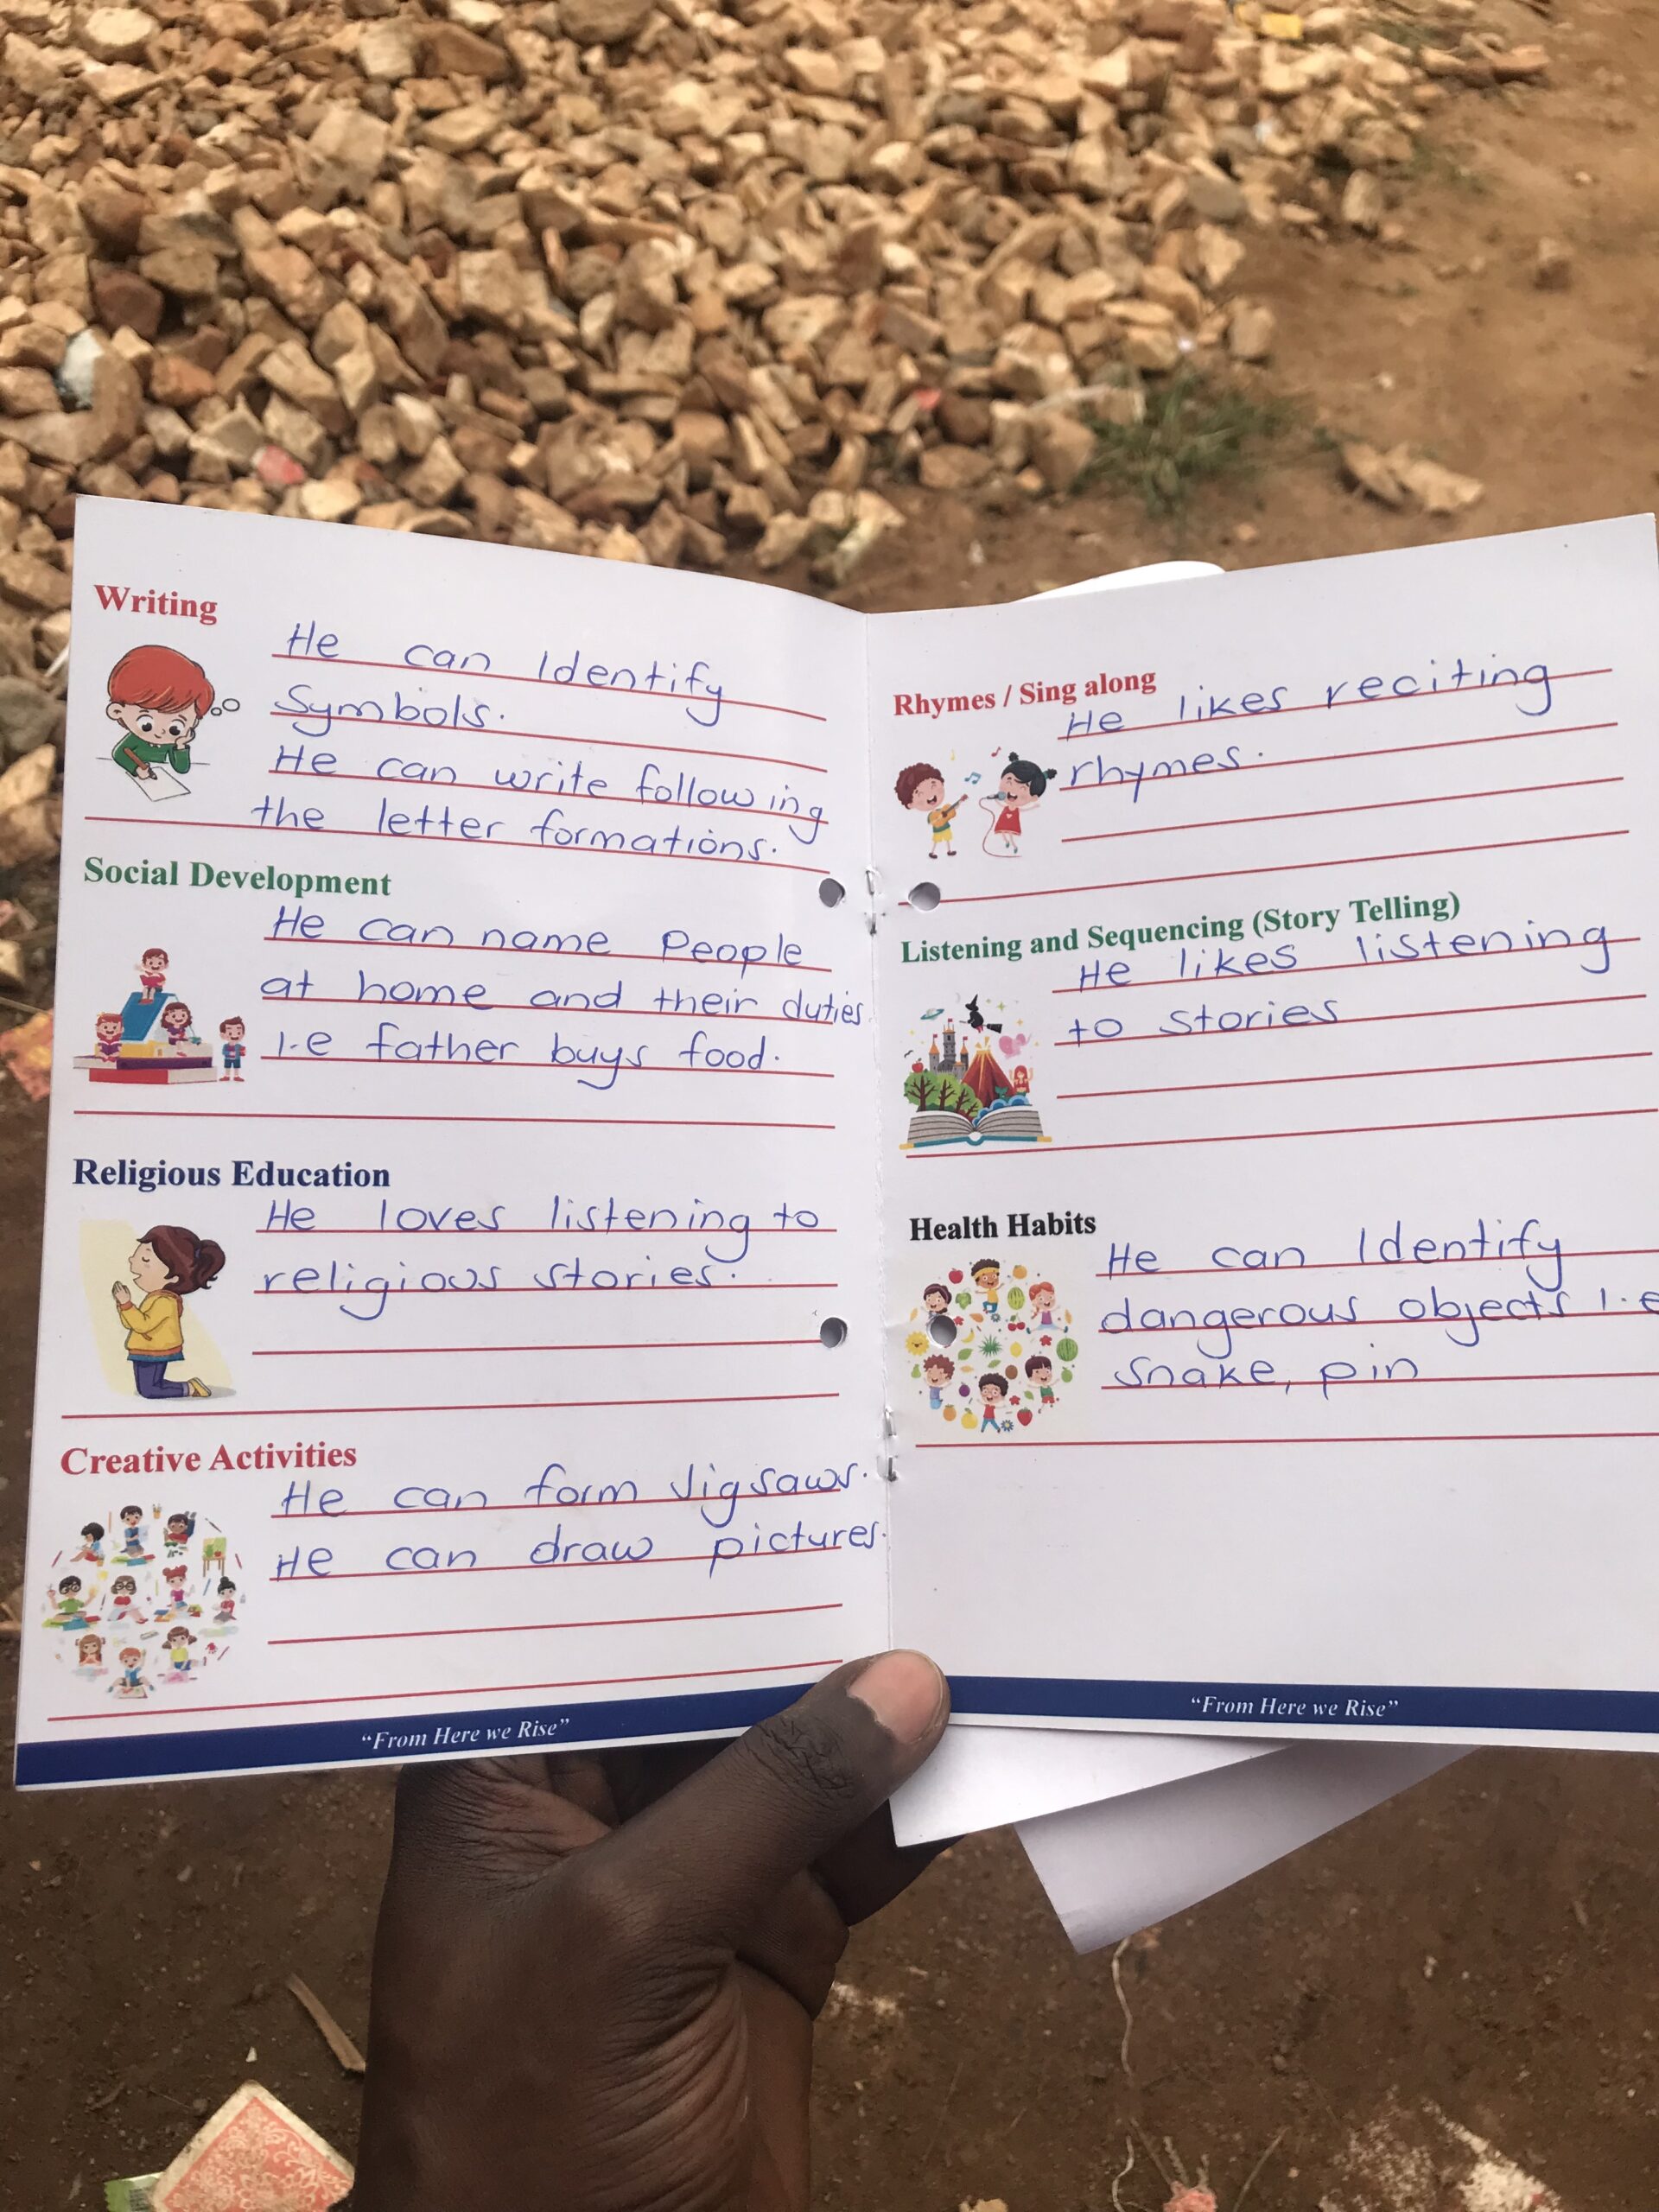 Writing
He can Identify
Symbols.
He can write following
the letter formations.
Social Development
He can name People
at home and their duties
i.e father buys food.
Religious Education
He loves listening to
religious stories.
Creative Activities
He can form Jigsaws.
He can draw pictures.
"From Here we Rise"
Rhymes / Sing along
He likes reciting
rhymes.
Listening and Sequencing (Story Telling)
He likes listening
to stories
Health Habits
He can Identify
dangerous objects i.e
snake, pin
"From Here we Rise"